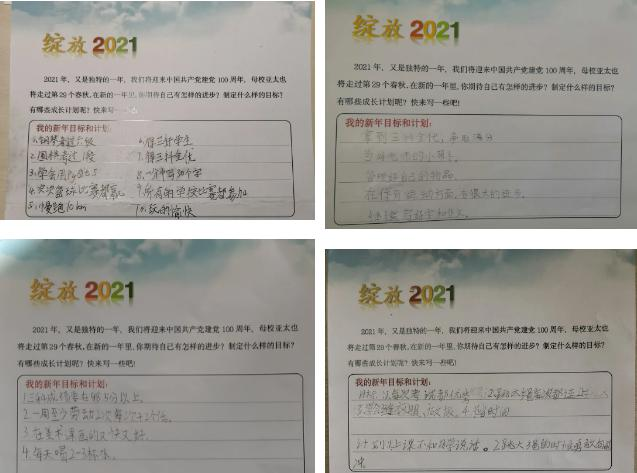 绽放 2021
2021 年, 又是独特的一年, 我们将迎来中国共产党建党 100 周年, 母校亚太也
将走过第 29 个春秋,在新的一年里,你期待自己有怎样的进步? 制定什么样的目标?
有哪些成长计划呢? 快来写一些吧!
我的新年目标和计划:
1.钢琴考过六级
6.得三好学生
2.围棋考过1段
7.得三科全优
3.学会用
4.次篮球比赛都赢
9.所有的学校比赛都参加
5.慢跑10km
10.玩的愉快
绽放 2021
2021 年, 又是独特的一年, 我们将迎来中国共产党建党 100 周年, 母校亚太也
将走过第 29 个春秋,在新的一年里,你期待自己有怎样的进步? 制定什么样的目标?
有哪些成长计划呢? 快来写一些吧!
我的新年目标和计划:
拿到三科全优, 争取满分
当好老师的小帮手。
管理好自己的物品。
在体育运动方面,有很大的进步。
绽放 2021
2021 年, 又是独特的一年, 我们将迎来中国共产党建党 100 周年, 母校亚太也
将走过第 29 个春秋,在新的一年里,你期待自己有怎样的进步? 制定什么样的目标?
有哪些成长计划呢? 快来写一些吧!
我的新年目标和计划:
1.三科成绩要在95分以上。
2.一周至少劳动2次每次1-2个
3.在美术课画的又快又好。
4.每天喝2-3杯水。
绽放 2021
2021 年, 又是独特的一年, 我们将迎来中国共产党建党 100 周年, 母校亚太也
将走过第 29 个春秋,在新的一年里,你期待自己有怎样的进步? 制定什么样的目标?
有哪些成长计划呢? 快来写一些吧!
我的新年目标和计划:
1.每次考试都优秀
计划:1.上课不和同学说话。2.
冲